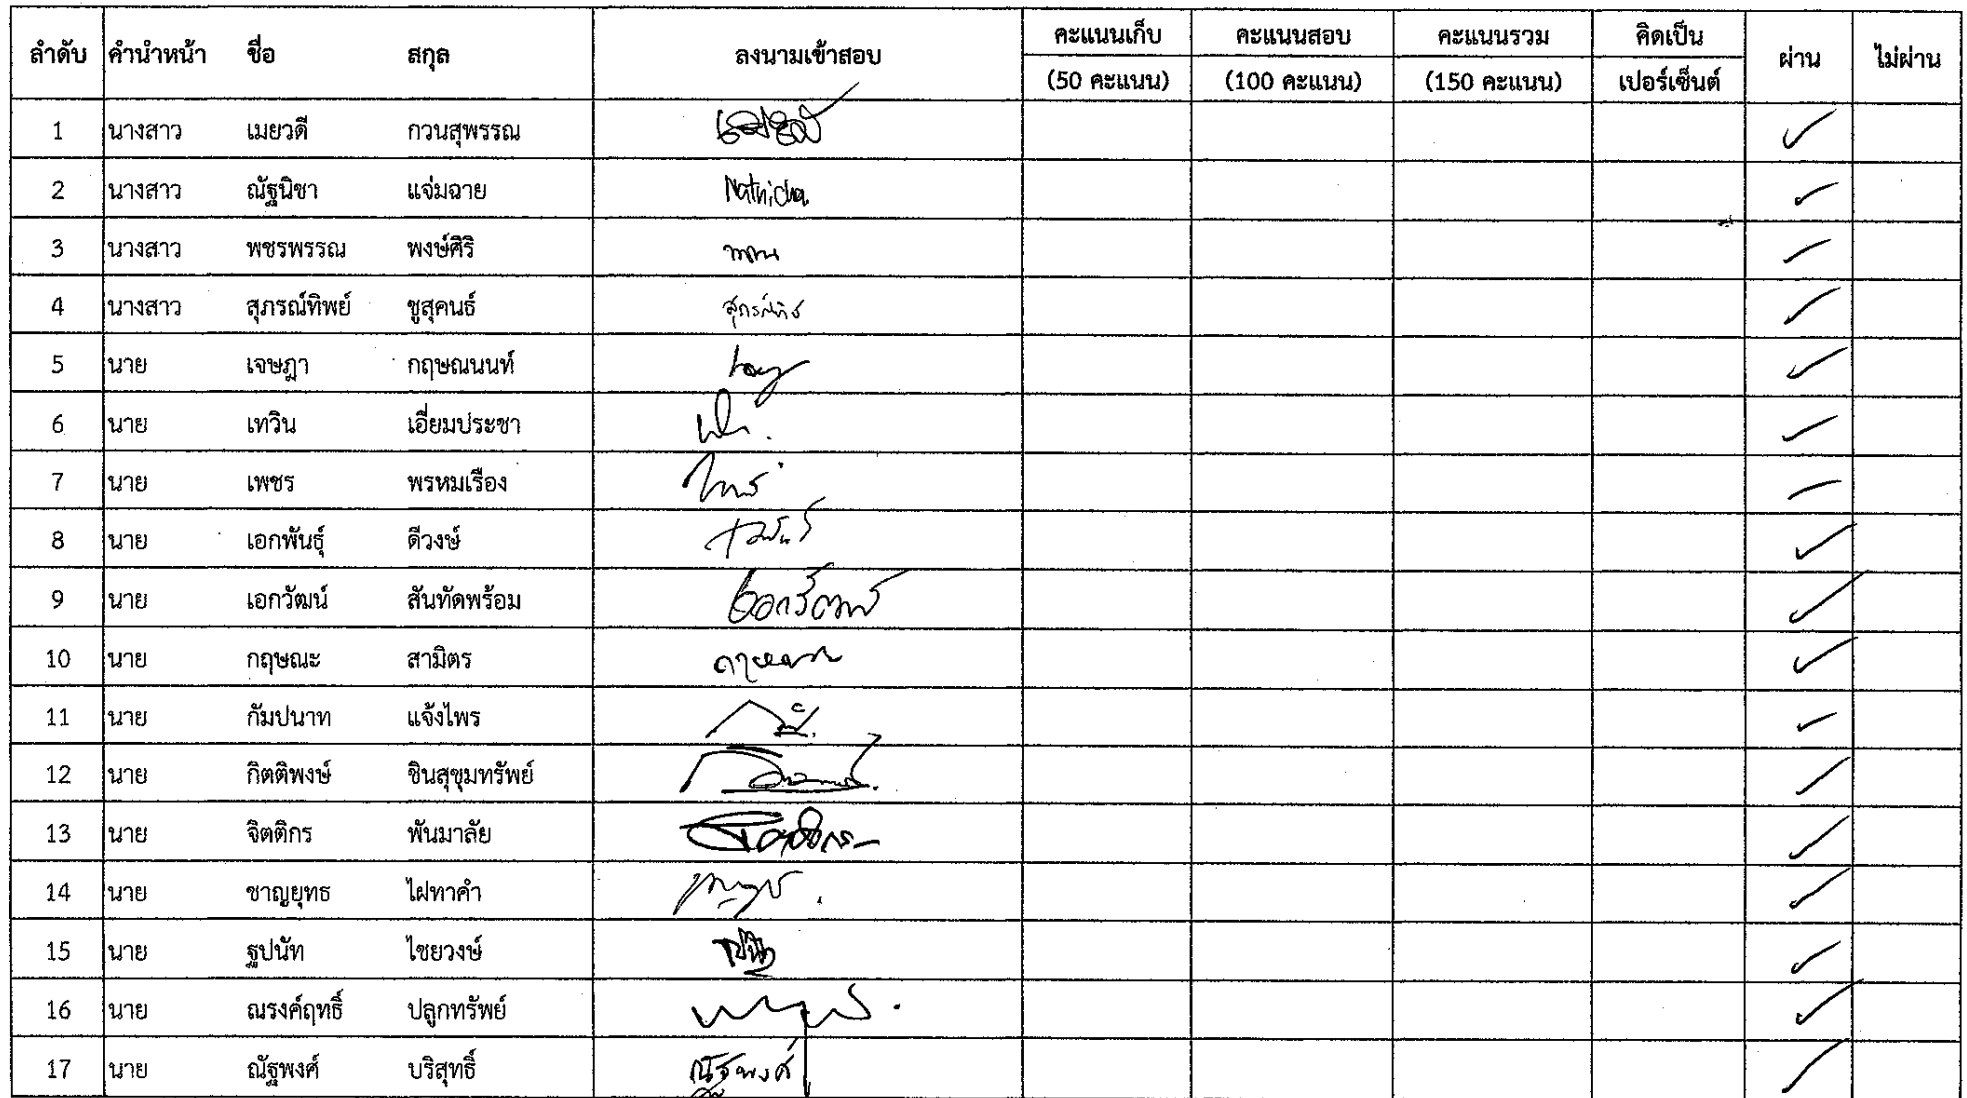 ลำดับ คำนำหน้า ชื่อ สกุล ลงนามเข้าสอบ คะแนนเก็บ (50 คะแนน) คะแนนสอบ (100 คะแนน) คะแนนรวม (150 คะแนน) คิดเป็น เปอร์เซ็นต์ ผ่าน ไม่ผ่าน
1 นางสาว เมยวดี กวนสุพรรณ
2 นางสาว ณัฐนิชา แจ่มฉาย Nathicha
3 นางสาว พชรพรรณ พงษ์ศิริ
4 นางสาว สุภรณ์ทิพย์ ชูสุคนธ์
5 นาย เจษฎา กฤษณนนท์
6 นาย เทวิน เอี่ยมประชา
7 นาย เพชร พรหมเรือง
8 นาย เอกพันธุ์ ดีวงษ์
9 นาย เอกวัฒน์ สันทัดพร้อม เอกวัฒน์
10 นาย กฤษณะ สามิตร
11 นาย กัมปนาท แจ้งไพร
12 นาย กิตติพงษ์ ชินสุขุมทรัพย์
13 นาย จิตติกร พันมาลัย
14 นาย ชาญยุทธ ไฝทาคำ
15 นาย ฐปนัท ไชยวงษ์
16 นาย ณรงค์ฤทธิ์ ปลูกทรัพย์
17 นาย ณัฐพงศ์ บริสุทธิ์ ณัฐพงศ์